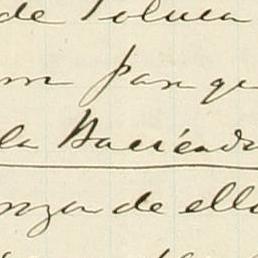 de Toluca
un parque
la Hacienda
nza de ella